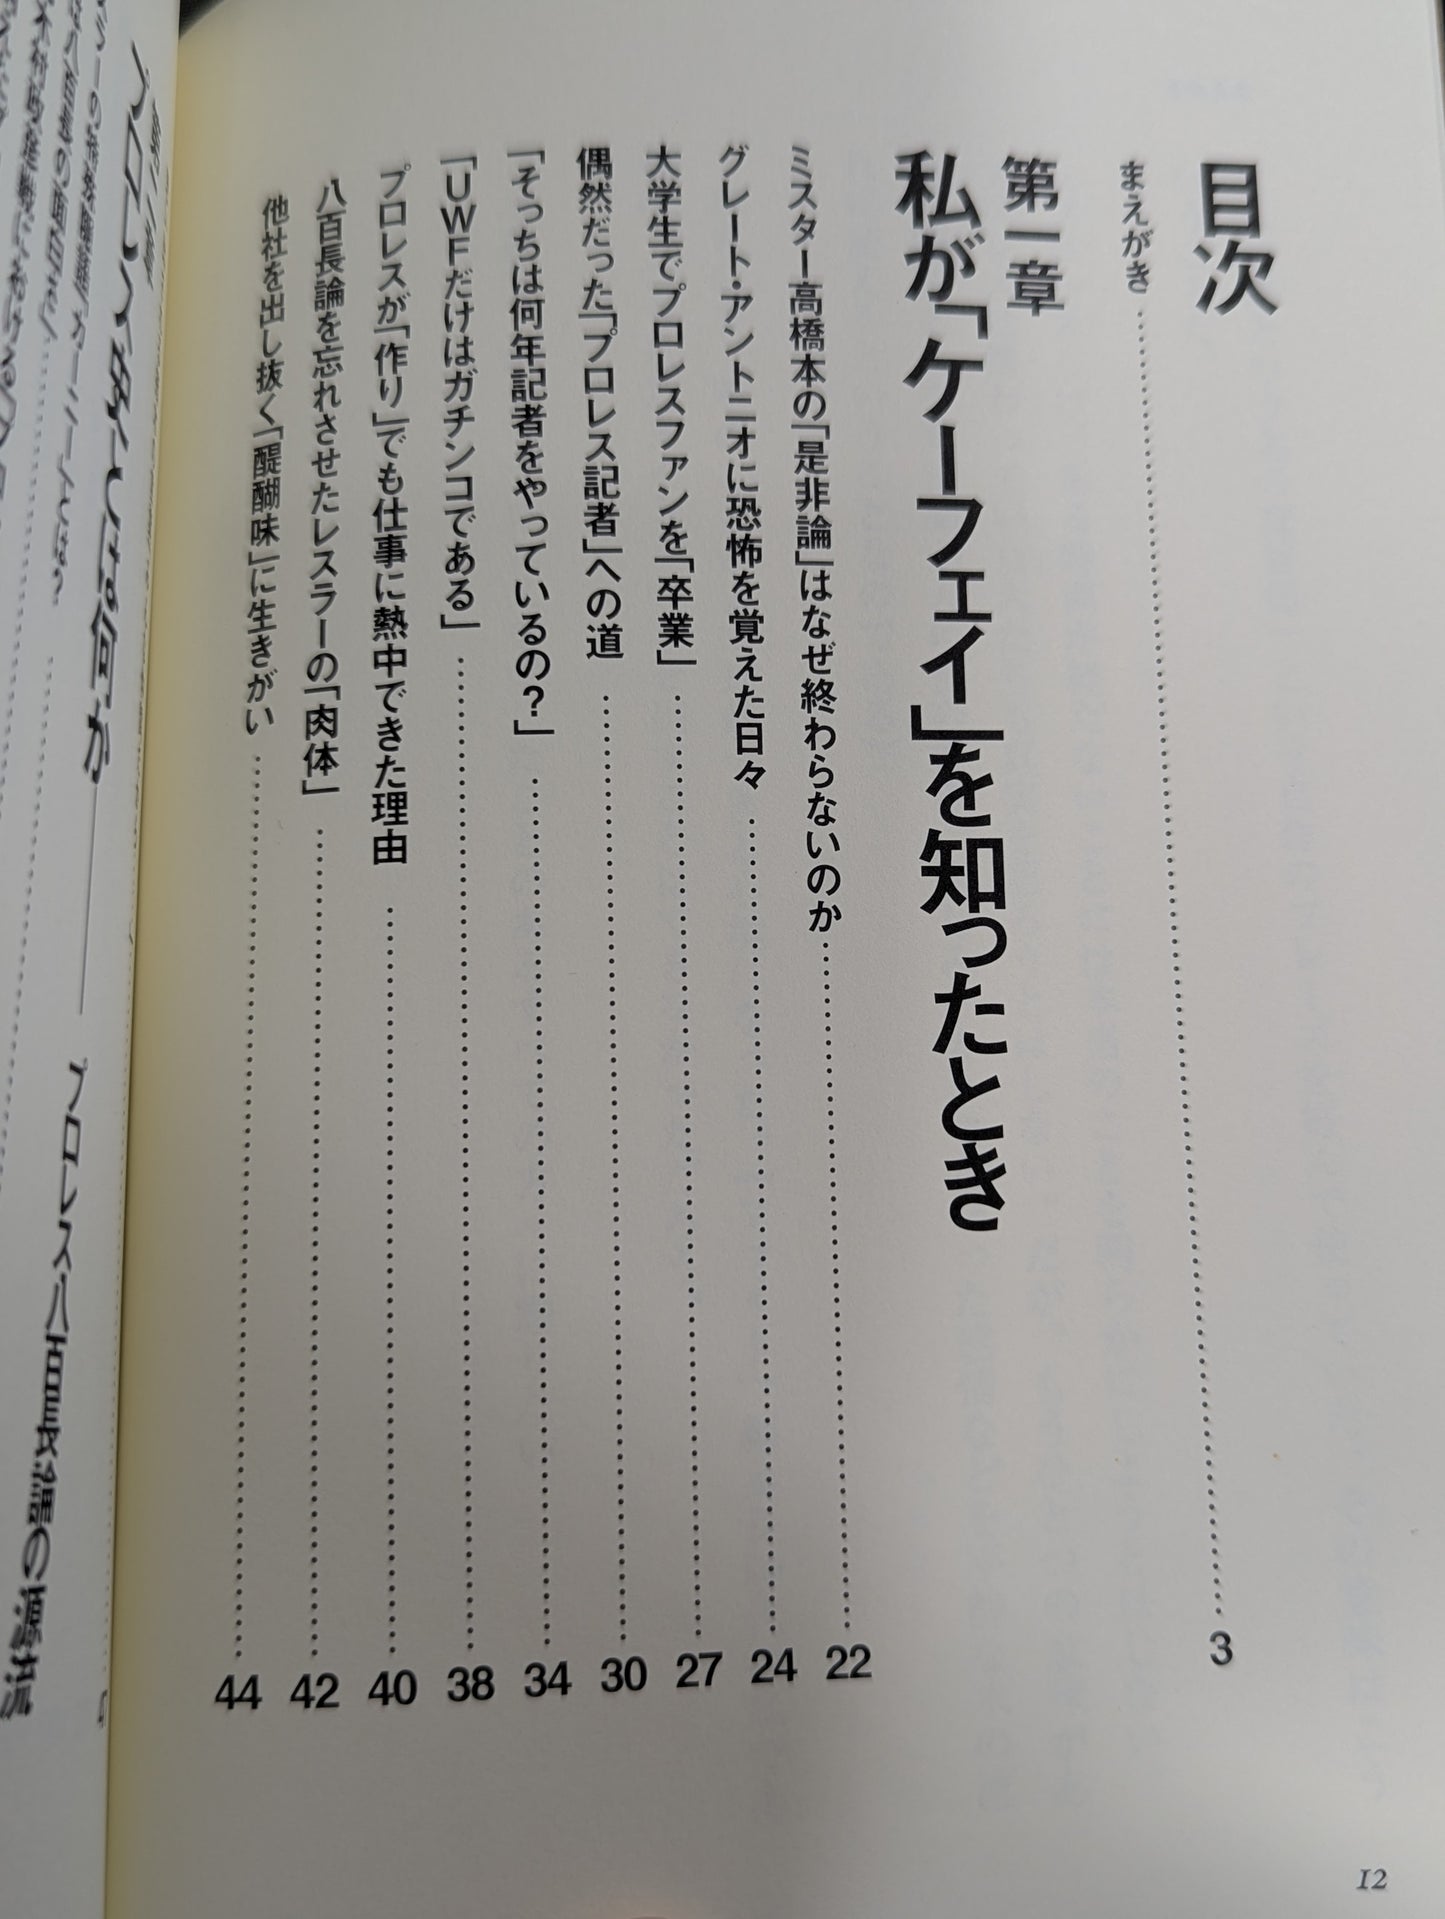 目次
まえがき……3
第一章
私が「ケーフェイ」を知ったとき
ミスター高橋本の「是非論」はなぜ終わらないのか……22
グレート・アントニオに恐怖を覚えた日々……24
大学生でプロレスファンを「卒業」……27
偶然だった「プロレス記者」への道……30
「そっちは何年記者をやっているの？」……34
「UWFだけはガチンコである」……38
プロレスが「作り」でも仕事に熱中できた理由……40
八百長論を忘れさせたレスラーの「肉体」……42
他社を出し抜く「醍醐味」に生きがい……44
12
とは何か——プロレス・八百長論の源流